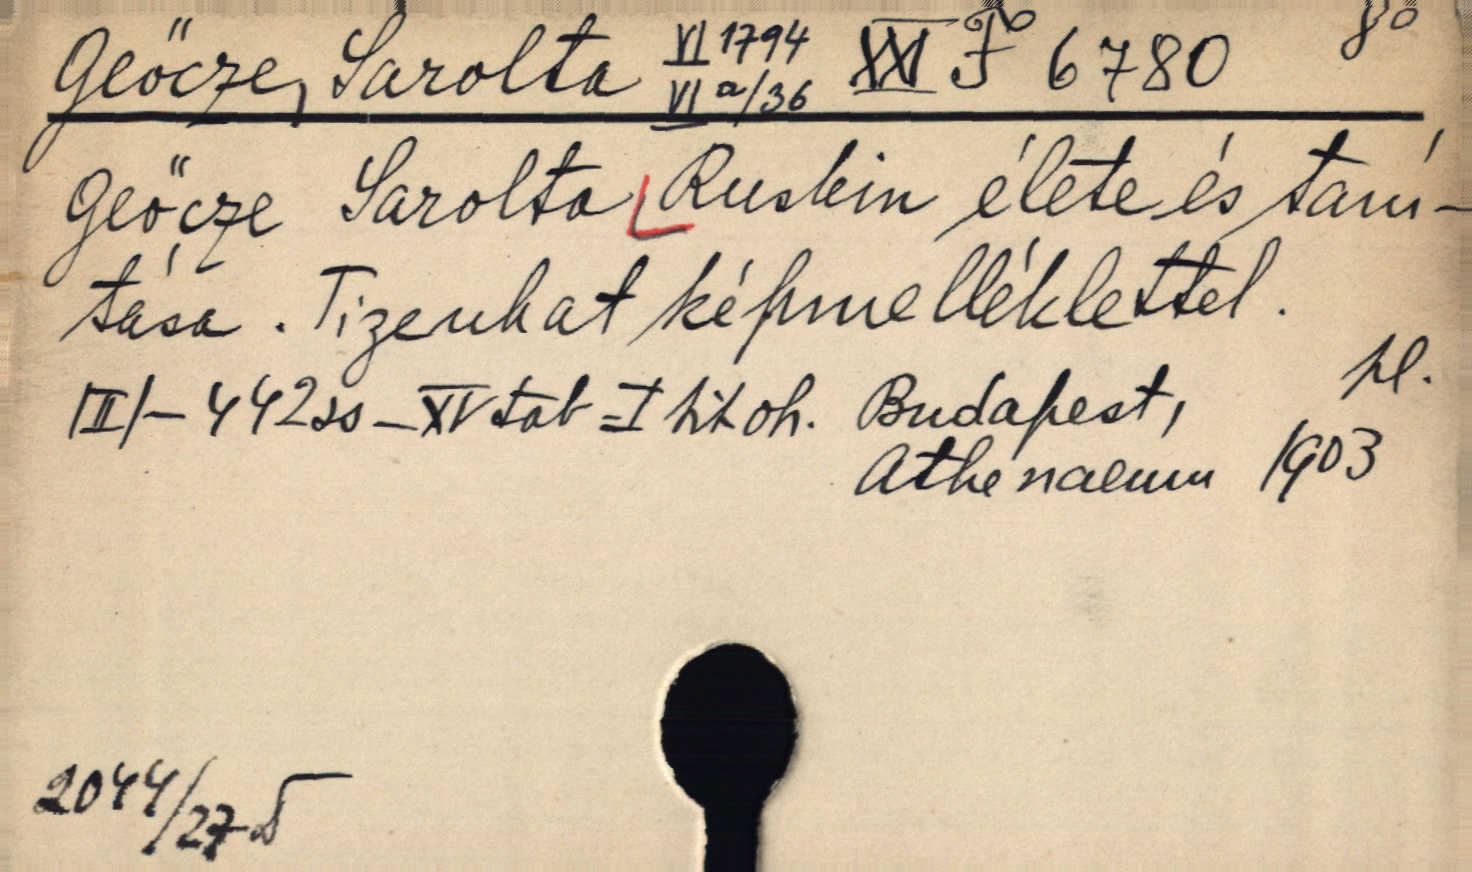 Geőcze, Sarolta VI 1794 XXI F 6780 8°
VI a/36
Geőcze Sarolta Ruskin élete és taní-
tása. Tizenhat képmelléklettel.
pl.
|II|- 442ss - XV tab = I tit oh. Budapest,
Athenaeum 1903
2044/27